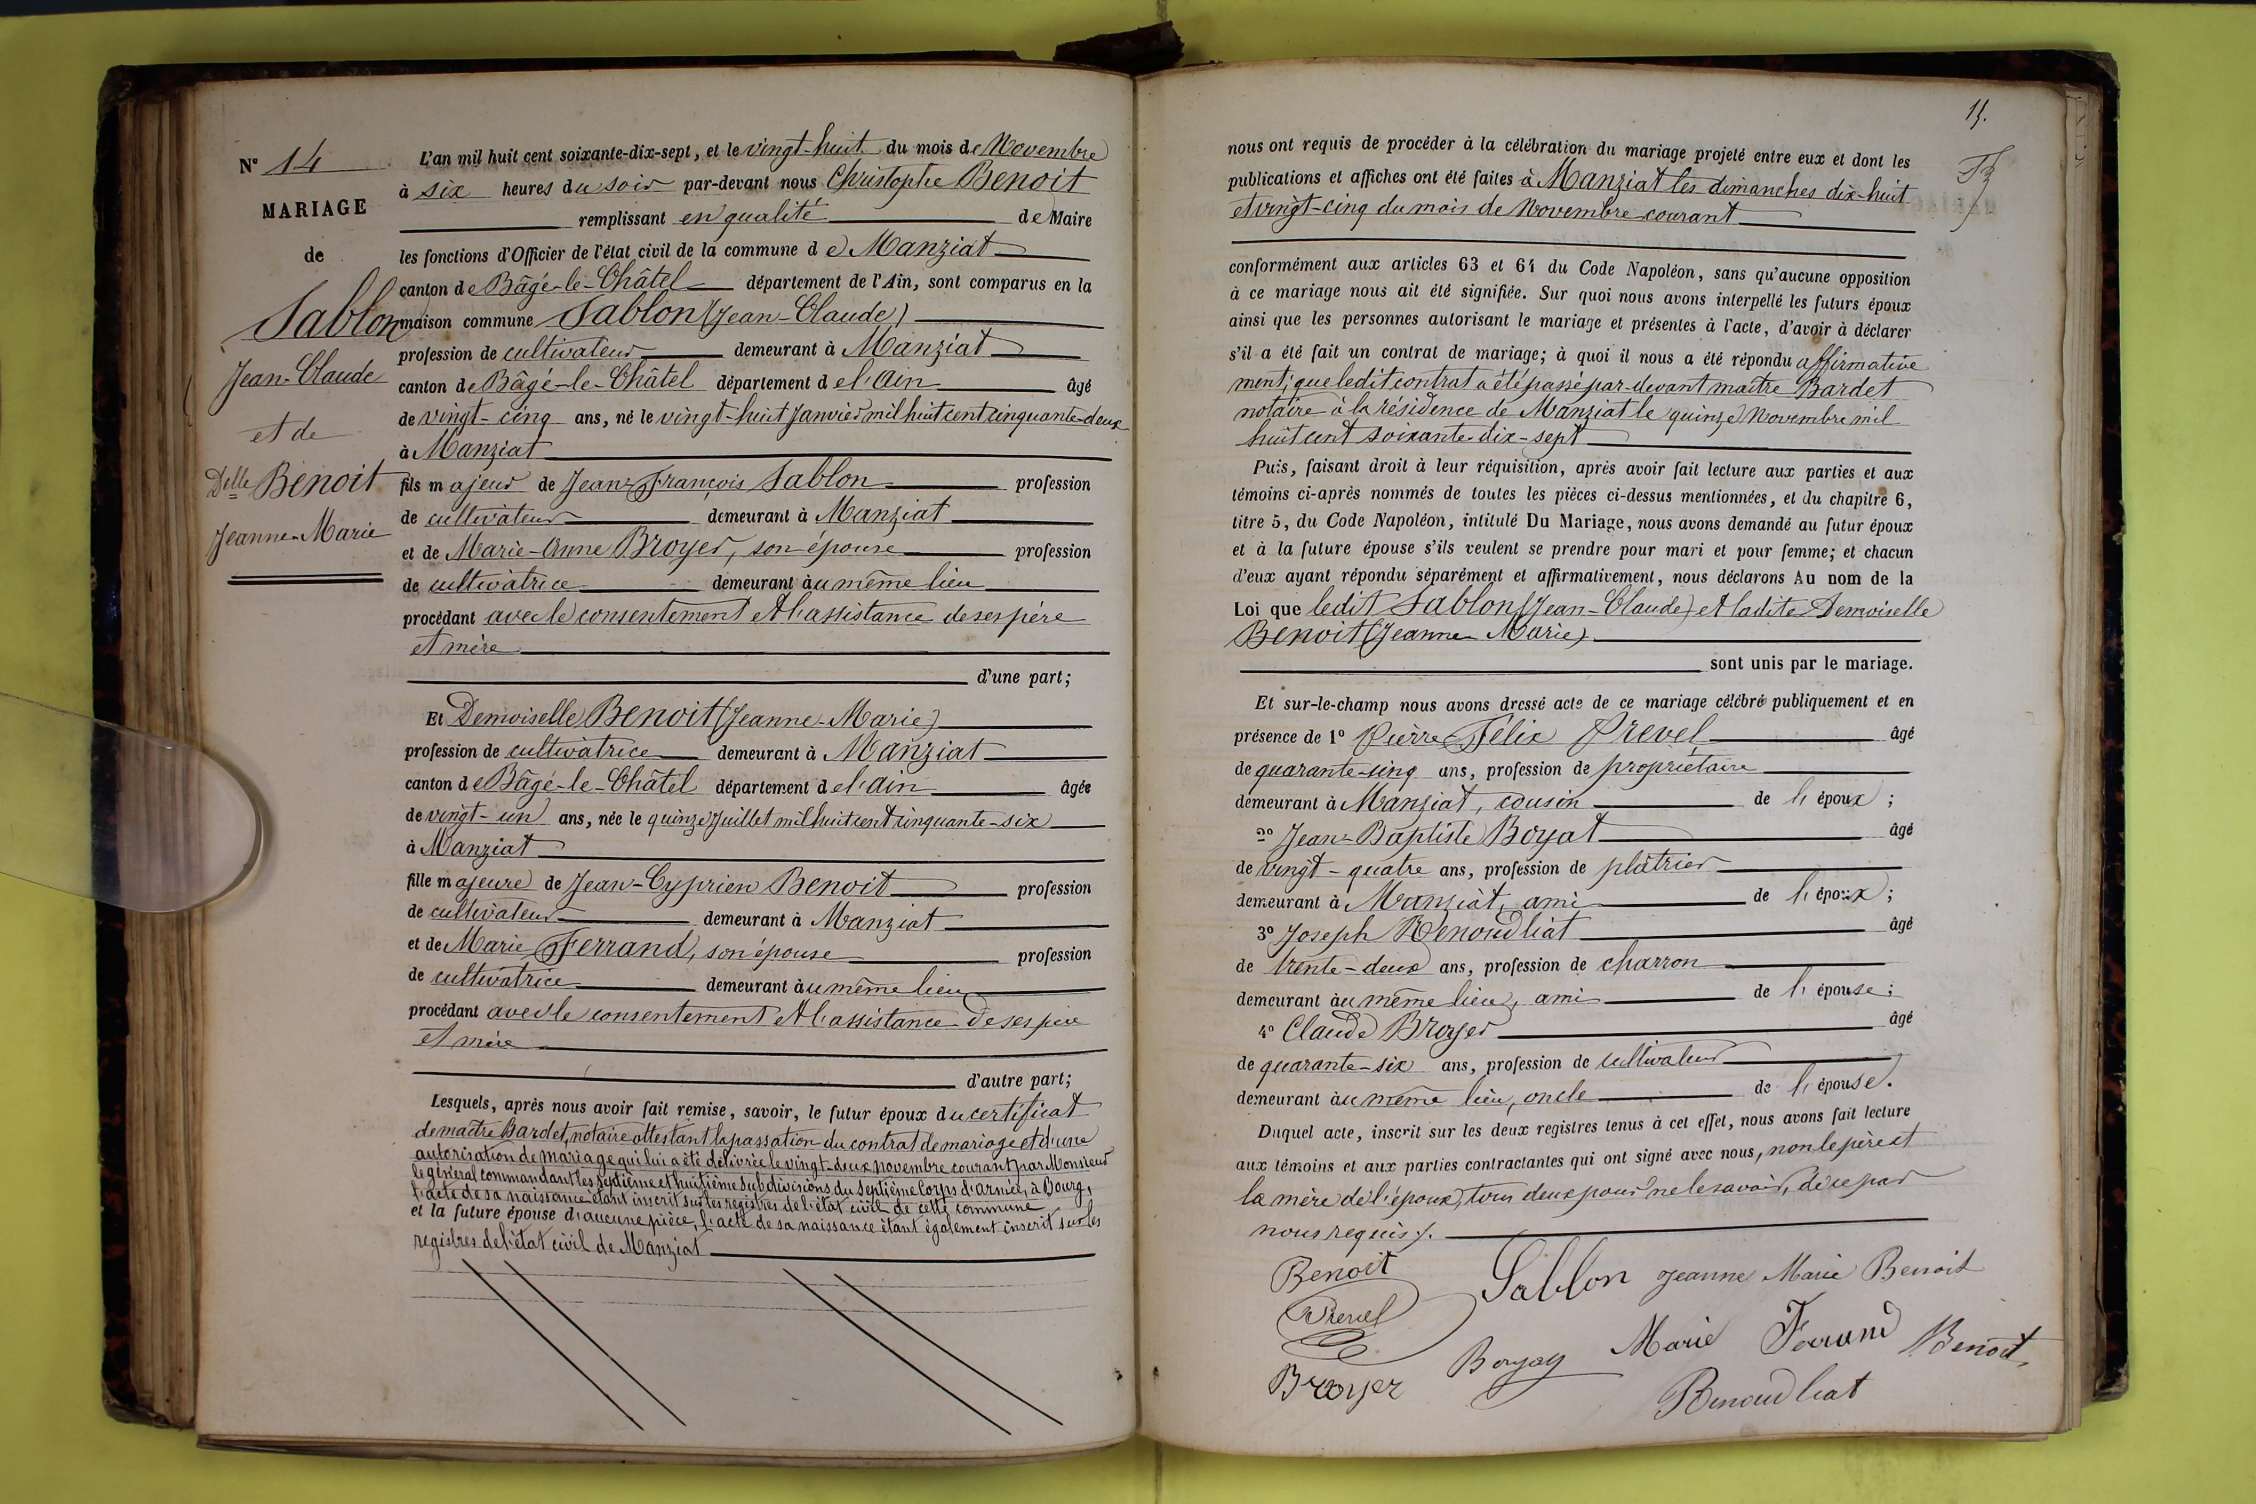 N° 14
MARIAGE
de
Sablon
Jean-Claude
et de
Delle Benoit
Jeanne-Marie
L'an mil huit cent soixante-dix-sept, et le vingt-huit du mois de Novembre
à six heures du soir par-devant nous Christophe Benoit
remplissant en qualité de Maire
les fonctions d'Officier de l'état civil de la commune de Manziat
canton de Bâgé-le-Châtel département de l'Ain, sont comparus en la
maison commune Sablon (Jean-Claude)
profession de cultivateur demeurant à Manziat
canton de Bâgé-le-Châtel département de l'Ain âgé
de vingt-cinq ans, né le vingt-huit Janvier mil huit cent cinquante-deux
à Manziat
fils majeur de Jean-François Sablon profession
de cultivateur demeurant à Manziat
et de Marie-Anne Broyer, son épouse profession
de cultivatrice demeurant au même lieu
procédant avec le consentement et l'assistance de ses père
et mère
d'une part;
Et Demoiselle Benoit (Jeanne-Marie)
profession de cultivatrice demeurant à Manziat
canton de Bâgé-le-Châtel département de l'Ain âgée
de vingt-un ans, née le quinze Juillet mil huit cent cinquante-six
à Manziat
fille majeure de Jean-Cyprien Benoit profession
de cultivateur demeurant à Manziat
et de Marie Ferrand, son épouse profession
de cultivatrice demeurant au même lieu
procédant avec le consentement et l'assistance de ses père
et mère
d'autre part;
Lesquels, après nous avoir fait remise, savoir, le futur époux du certificat
de maître Bardet, notaire attestant la passation du contrat de mariage et d'une
autorisation de mariage qui lui a été délivrée le vingt-deux novembre courant par Monsieur
le général commandant les septième et huitième subdivisions du septième Corps d'armée, à Bourg,
l'acte de sa naissance étant inscrit sur les registres de l'état civil de cette commune
et la future épouse d'aucune pièce, l'acte de sa naissance étant également inscrit sur les
registres de l'état civil de Manziat
15.
nous ont requis de procéder à la célébration du mariage projeté entre eux et dont les
publications et affiches ont été faites à Manziat les dimanches dix-huit
et vingt-cinq du mois de Novembre courant
conformément aux articles 63 et 64 du Code Napoléon, sans qu'aucune opposition
à ce mariage nous ait été signifiée. Sur quoi nous avons interpellé les futurs époux
ainsi que les personnes autorisant le mariage et présentes à l'acte, d'avoir à déclarer
s'il a été fait un contrat de mariage; à quoi il nous a été répondu affirmative
ment, que ledit contrat a été passé par-devant maître Bardet
notaire à la résidence de Manziat le quinze Novembre mil
huit cent soixante-dix-sept
Puis, faisant droit à leur réquisition, après avoir fait lecture aux parties et aux
témoins ci-après nommés de toutes les pièces ci-dessus mentionnées, et du chapitre 6,
titre 5, du Code Napoléon, intitulé Du Mariage, nous avons demandé au futur époux
et à la future épouse s'ils veulent se prendre pour mari et pour femme; et chacun
d'eux ayant répondu séparément et affirmativement, nous déclarons Au nom de la
Loi que ledit Sablon (Jean-Claude) et ladite Demoiselle
Benoit (Jeanne Marie)
sont unis par le mariage.
Et sur-le-champ nous avons dressé acte de ce mariage célébré publiquement et en
présence de 1° Pierre-Félix Prevel âgé
de quarante-cinq ans, profession de propriétaire
demeurant à Manziat, cousin de l'époux;
2° Jean-Baptiste Boyat âgé
de vingt-quatre ans, profession de plâtrier
demeurant à Manziat, ami de l'époux;
3° Joseph Renoudliat âgé
de trente-deux ans, profession de charron
demeurant au même lieu, ami de l'épouse;
4° Claude Broyer âgé
de quarante-six ans, profession de cultivateur
demeurant au même lieu, oncle de l'épouse.
Duquel acte, inscrit sur les deux registres tenus à cet effet, nous avons fait lecture
aux témoins et aux parties contractantes qui ont signé avec nous, non le père et
la mère de l'époux, tous deux pour ne le savoir, de ce par
nous requis
Benoit Sablon Jeanne Marie Benoit
Prevel
Marie Ferrand Benoit
Broyer Boyay
Renoudliat